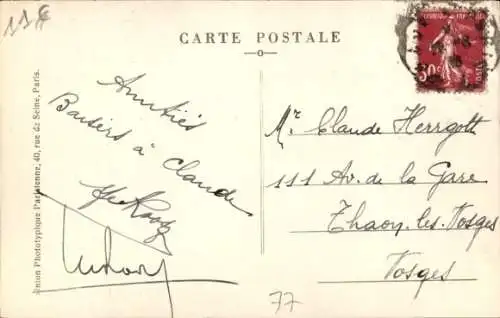 118
CARTE POSTALE
30c
Amitiés
Baisers à Claude
Mr Claude Herrgott
111 Av. de la Gare
Thaon-les-Vosges
Vosges
77
Union Phototypique Parisienne, 40, rue de Seine, Paris.